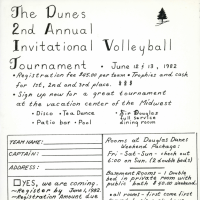 The Dunes
2nd Annual
Invitational Volleyball
Tournament • June 12 & 13, 1982
• Registration fee $65.00 per team • Trophies and cash
for 1st, 2nd and 3rd place. $$$
• Sign up now for a great tournament
at the vacation center of the Midwest
• Disco • Tea Dance • Air Douglas
full service
• Patio bar • Pool dining room
TEAM NAME:
CAPTAIN:
ADDRESS:
YES, we are coming.
• Register by June 1, 1982.
• Registration Amount due
Rooms at Douglas Dunes
Weekend Package:
Fri - Sat - Sun - check out
6:00 on Sun. (2 double beds)
Basement Rooms - 1 Double
bed in private room with
public bath weekend.
• all rooms - first come first